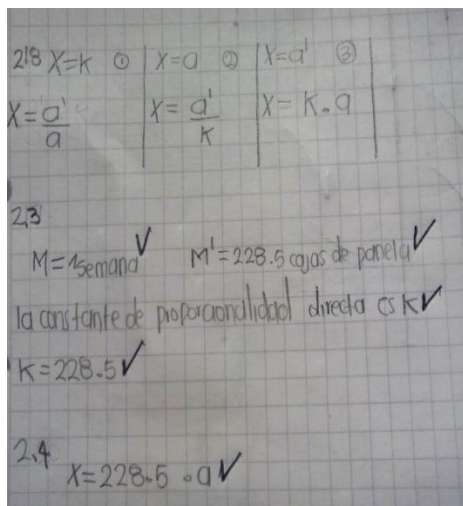 2.8 X=k ① X=a ② X=a' ③
X=a'/a X=a'/k X=k.a
2.3
M=1 semana M'=228.5 cajas de panela
la constante de proporcionalidad directa es k
k=228.5
2.4
X=228.5 .a